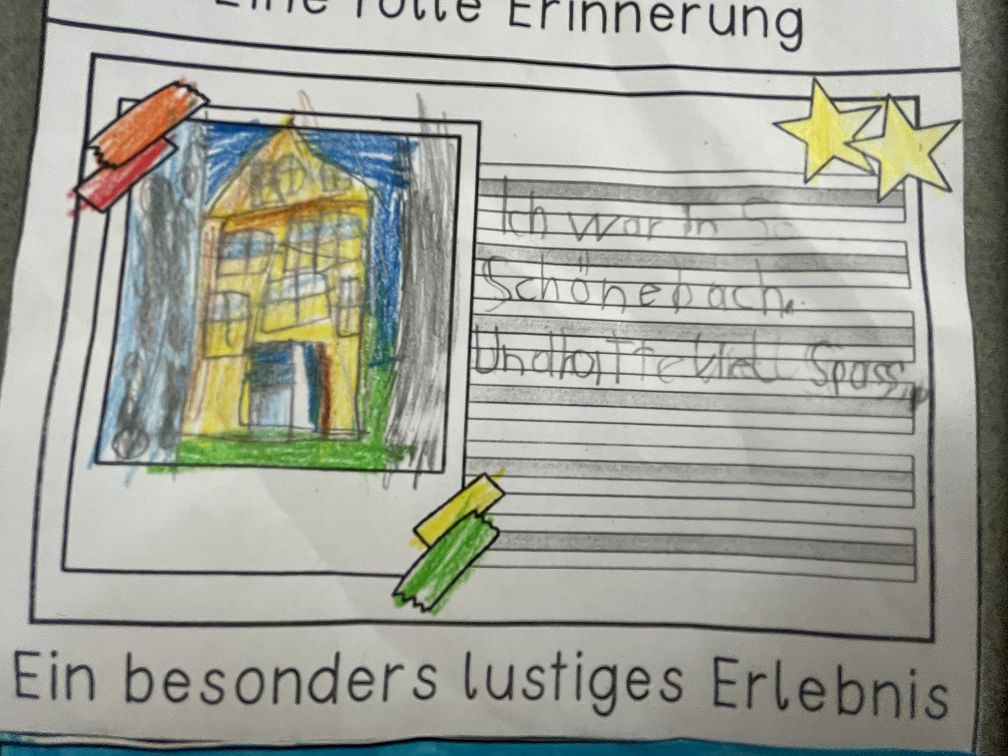 Eine tolle Erinnerung
Ich war in Sc
Schönebach.
Und hatte viel Spass.
Ein besonders lustiges Erlebnis